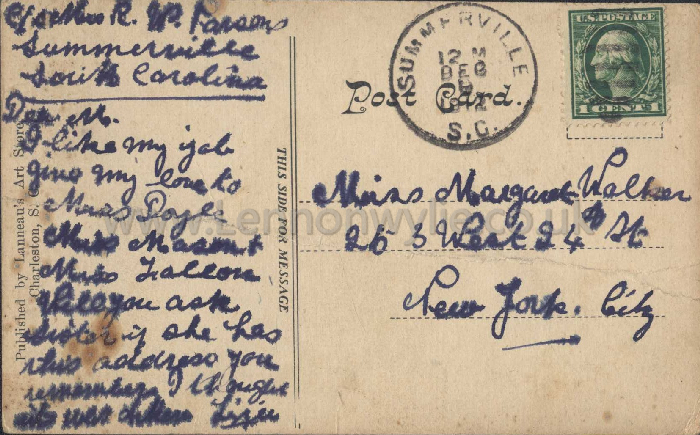 c/o Mrs R. W. Parsons
Summerville
South Carolina
Dear M.
I like my job
give my love to
Miss Doyle
Miss
Miss Fallon
you ask
if she has
this address you
remember I thought
its was Lizzie
Published by Lanneau's Art Store,
Charleston, S.
THIS SIDE FOR MESSAGE
Post Card.
SUMMERVILLE
12 M
DEC
1912
S.C.
U.S. POSTAGE
1 CENT 1
Miss Margaret Walker
263 West 24th St
New York. City
www.Lennonwylie.co.uk